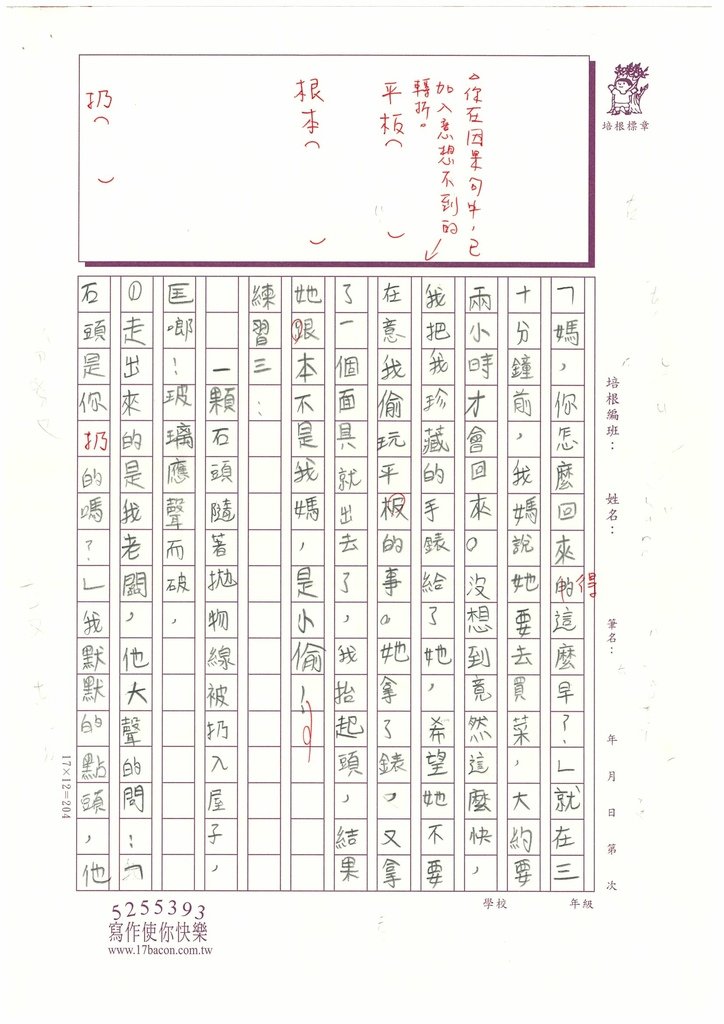 △你在因果句中，已
加入意想不到的
轉折。
平板（ ）
根本（ ）
扔（ ）
培根標章
培根編班： 姓名： 筆名： 年 月 日 第 次
學校 年級
「媽，你怎麼回來的這麼早？」就在三
得
十分鐘前，我媽說她要去買菜，大約要
兩小時才會回來。沒想到竟然這麼快，
我把我珍藏的手錶給了她，希望她不要
在意我偷玩平板的事。她拿了錶，又拿
了一個面具就出去了，我抬起頭，結果
她跟本不是我媽，是小偷！
練習三：
一顆石頭隨著拋物線被扔入屋子，
匡啷！玻璃應聲而破，
①走出來的是我老闆，他大聲的問：「
石頭是你扔的嗎？」我默默的點頭，他
17×12=204
5255393
寫作使你快樂
www.17bacon.com.tw